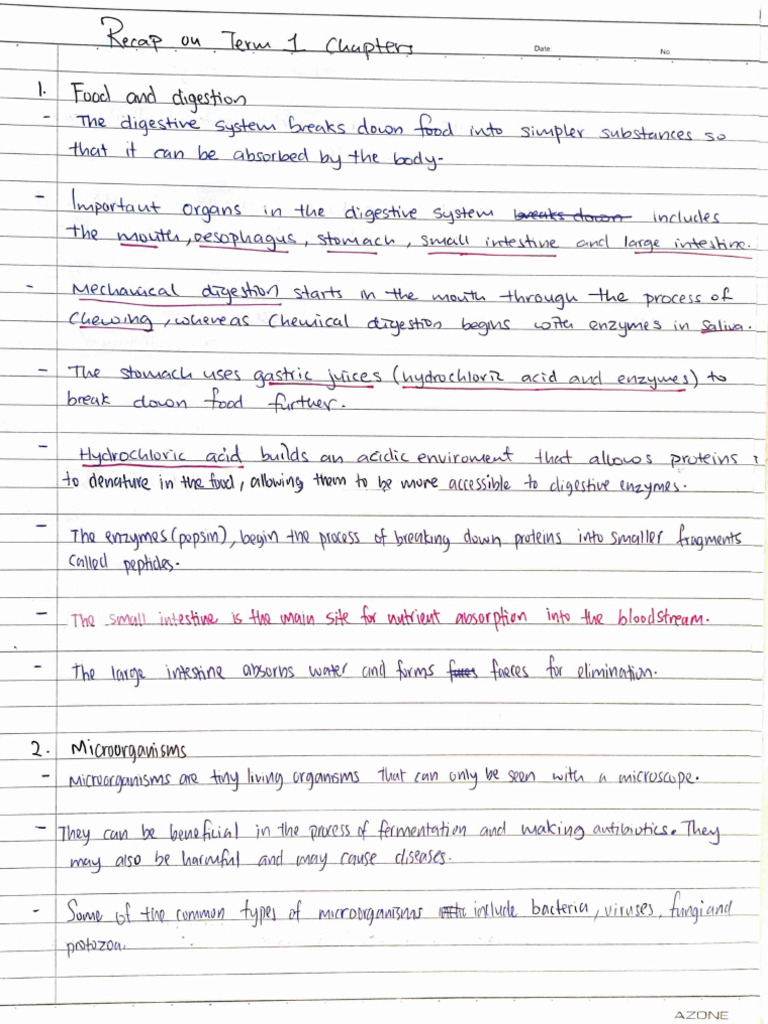 Recap on Term 1 Chapters
Date
No
1. Food and digestion
- The digestive system breaks down food into simpler substances so
that it can be absorbed by the body.
- Important organs in the digestive system breaks down includes
the mouth, oesophagus, stomach, small intestine and large intestine.
- Mechanical digestion starts in the mouth through the process of
chewing, whereas Chemical digestion begins with enzymes in saliva.
- The stomach uses gastric juices (hydrochloric acid and enzymes) to
break down food further.
- Hydrochloric acid builds an acidic enviroment that allows proteins
to denature in the food, allowing them to be more accessible to digestive enzymes.
- The enzymes (popsin), begin the process of breaking down proteins into smaller fragments
called peptides.
- The small intestine is the main site for nutrient absorption into the bloodstream.
- The large intestine absorbs water and forms faeces for elimination.
2. Microorganisms
- Microorganisms are tiny living organisms that can only be seen with a microscope.
- They can be beneficial in the process of fermentation and making antibiotics. They
may also be harmful and may cause diseases.
- Some of the common types of microorganisms include bacteria, viruses, fungi and
protozoa.
AZONE